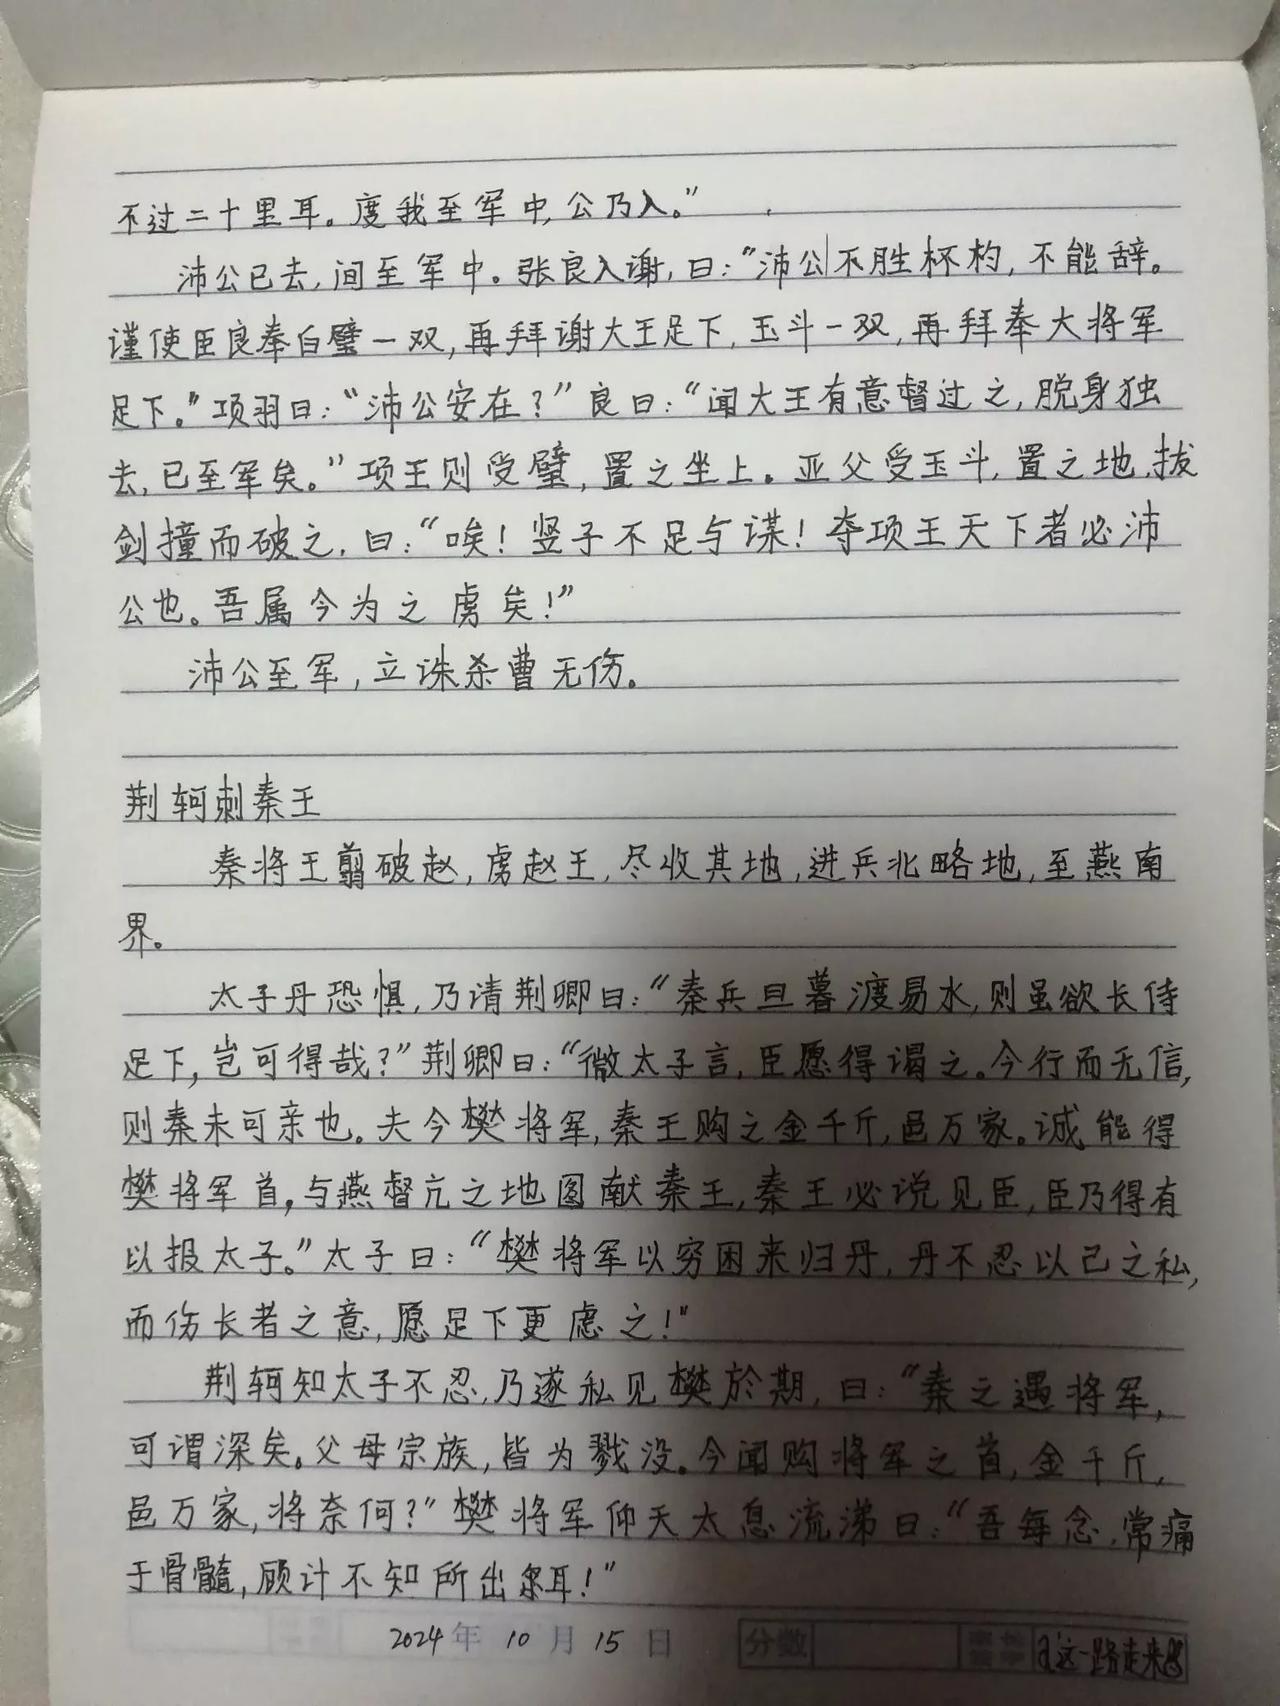 不过二十里耳。度我至军中,公乃入。”
沛公已去,间至军中。张良入谢,曰:“沛公不胜杯杓,不能辞。
谨使臣良奉白璧一双,再拜谢大王足下,玉斗一双,再拜奉大将军
足下。”项羽曰:“沛公安在?”良曰:“闻大王有意督过之,脱身独
去,已至军矣。”项王则受璧,置之坐上。亚父受玉斗,置之地,拔
剑撞而破之,曰:“唉!竖子不足与谋!夺项王天下者必沛
公也。吾属今为之虏矣!”
沛公至军,立诛杀曹无伤。
荆轲刺秦王
秦将王翦破赵,虏赵王,尽收其地,进兵北略地,至燕南
界。
太子丹恐惧,乃请荆卿曰:“秦兵旦暮渡易水,则虽欲长侍
足下,岂可得哉?”荆卿曰:“微太子言,臣愿得谒之。今行而无信,
则秦未可亲也。夫今樊将军,秦王购之金千斤,邑万家。诚能得
樊将军首,与燕督亢之地图献秦王,秦王必说见臣,臣乃得有
以报太子。”太子曰:“樊将军以穷困来归丹,丹不忍以己之私,
而伤长者之意,愿足下更虑之!”
荆轲知太子不忍,乃遂私见樊於期,曰:“秦之遇将军,
可谓深矣。父母宗族,皆为戮没。今闻购将军之首,金千斤,
邑万家,将奈何?”樊将军仰天太息流涕曰:“吾每念,常痛
于骨髓,顾计不知所出耳!”
2024年 10月 15日 分数 这一路走来